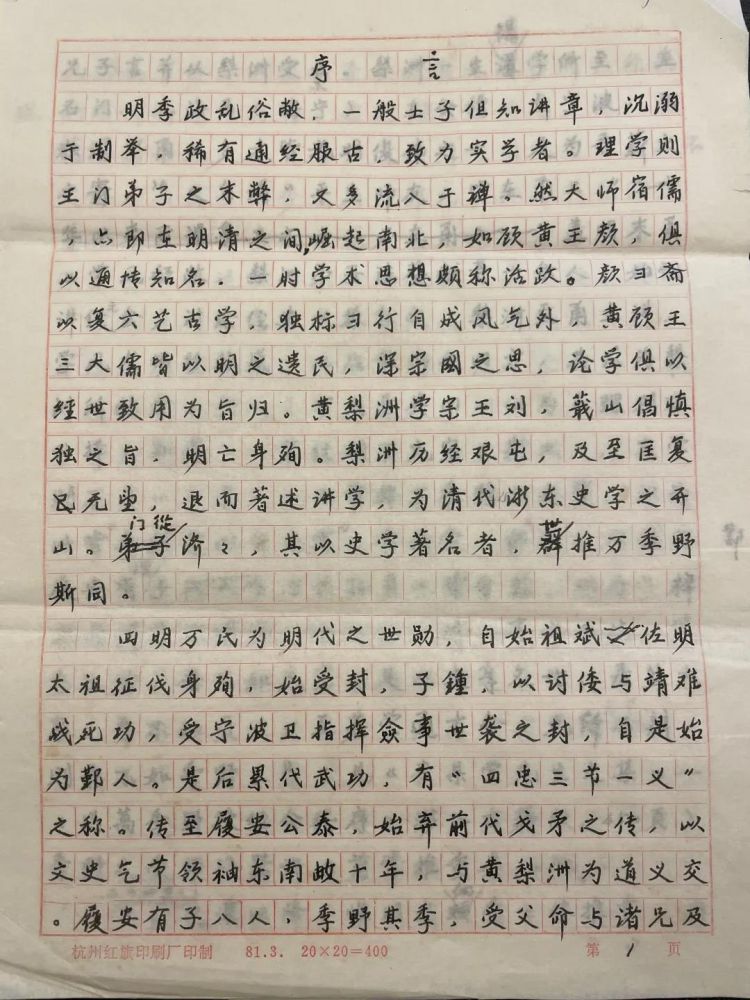 序言
明季政乱俗敝，一般士子但知讲章，沉溺
于制举，稀有通经服古，致力实学者。理学则
王门弟子之末弊，又多流入于禅。然大师宿儒
，亦即在明清之间，崛起南北，如顾黄王颜，俱
以通博知名。一时学术思想颇称活跃。颜习斋
以复六艺古学，独标习行自成风气外，黄顾王
三大儒皆以明之遗民，深宗国之思，论学俱以
经世致用为旨归。黄梨洲学宗王刘，蕺山倡慎
独之旨，明亡身殉。梨洲历经艰屯，及至匡复
已无望，退而著述讲学，为清代浙东史学之开
门從
山。弟子济々，其以史学著名者，群推万季野
世
斯同。
四明万氏为明代之世勋，自始祖斌佐明
太祖征伐身殉，始受封，子鍾，以讨倭与靖难
战死功，受宁波卫指挥佥事世袭之封，自是始
为鄞人。是后累代武功，有“四忠三节一义”
之称。传至履安公泰，始弃前代戈矛之传，以
文史气节领袖东南數十年，与黄梨洲为道义交
。履安有子八人，季野其季，受父命与诸兄及
杭州红旗印刷厂印制 81.3. 20×20=400 第 1 页